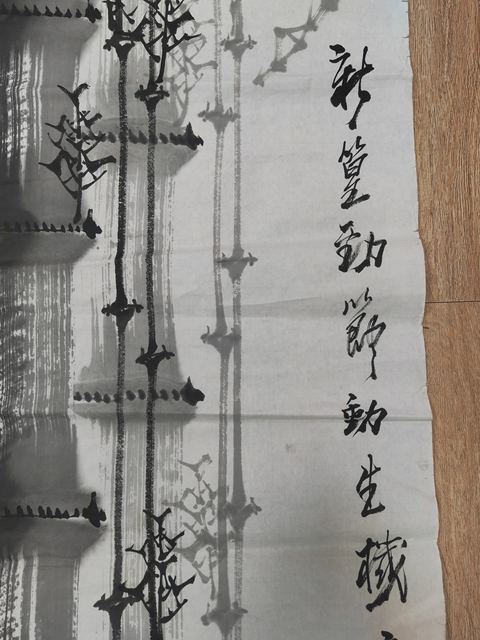 新篁勁節動生機